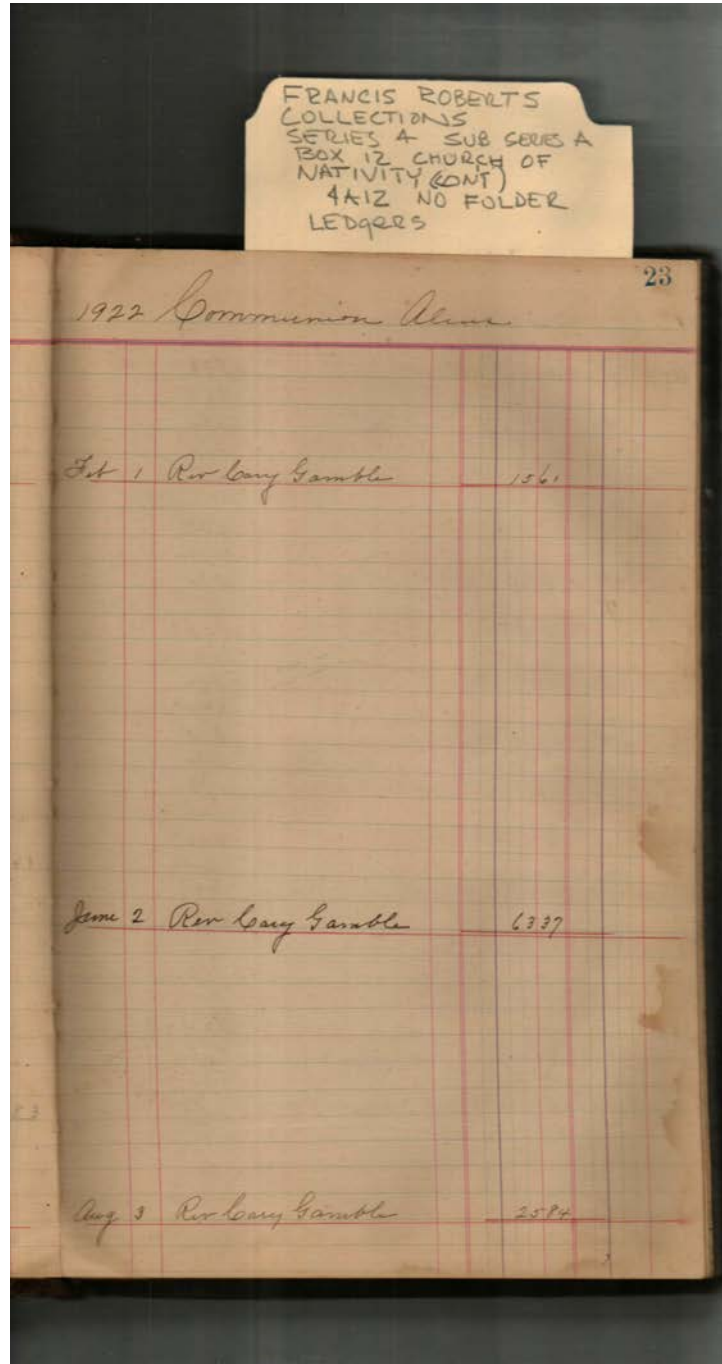 FRANCIS ROBERTS
COLLECTIONS
SERIES 4 SUB SERIES A
BOX 12 CHURCH OF
NATIVITY (CONT)
4A12 NO FOLDER
LEDGERS
23
1922 Communion Alms
Feb 1 Rev Cary Gamble 1561
June 2 Rev Cary Gamble 6337
Aug 3 Rev Cary Gamble 2584